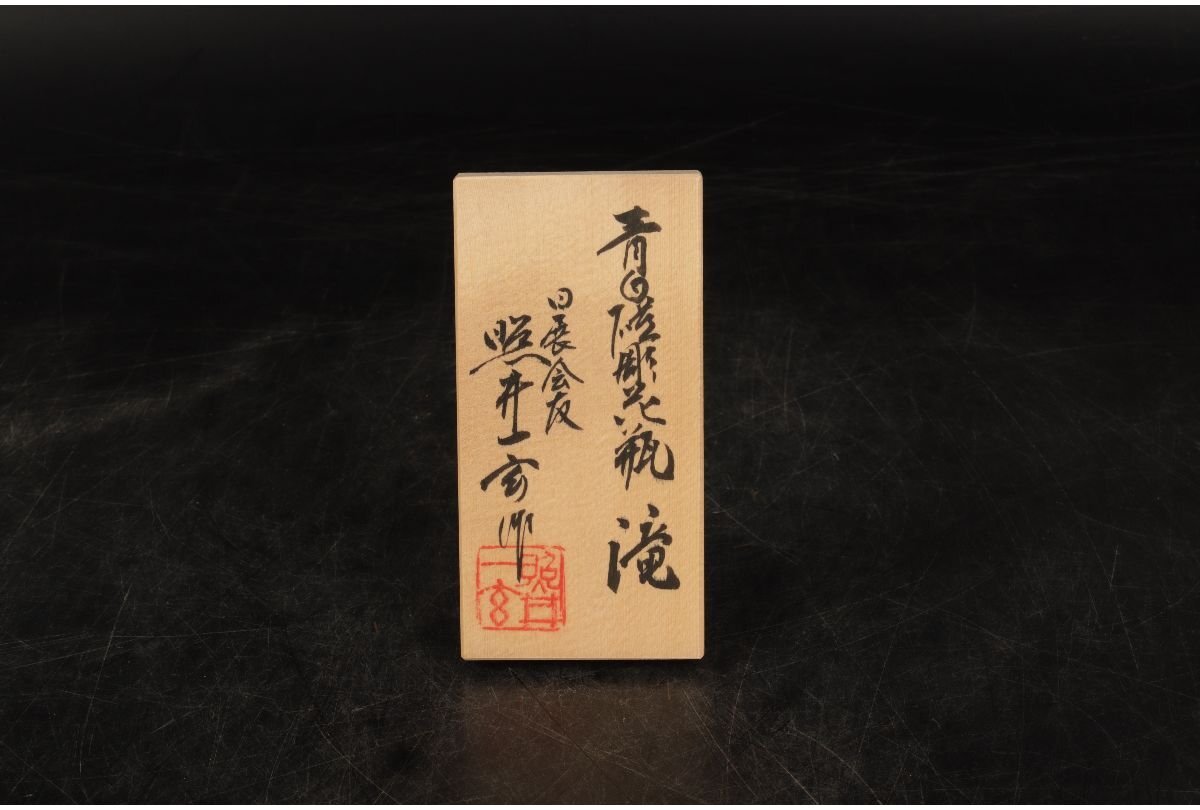 青白磁彫花瓶 滝
日展会友
照井一玄作
照井
一玄